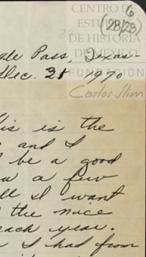 6
(28/28)
CENTRO DE
ESTUDIOS
DE HISTORIA
DE MÉXICO
FUNDACIÓN
Carlos Slim
Pass, Texas
Dec. 28 1970
This is the
and I
be a good
a few
ll I want
the nice
each year.
I had from